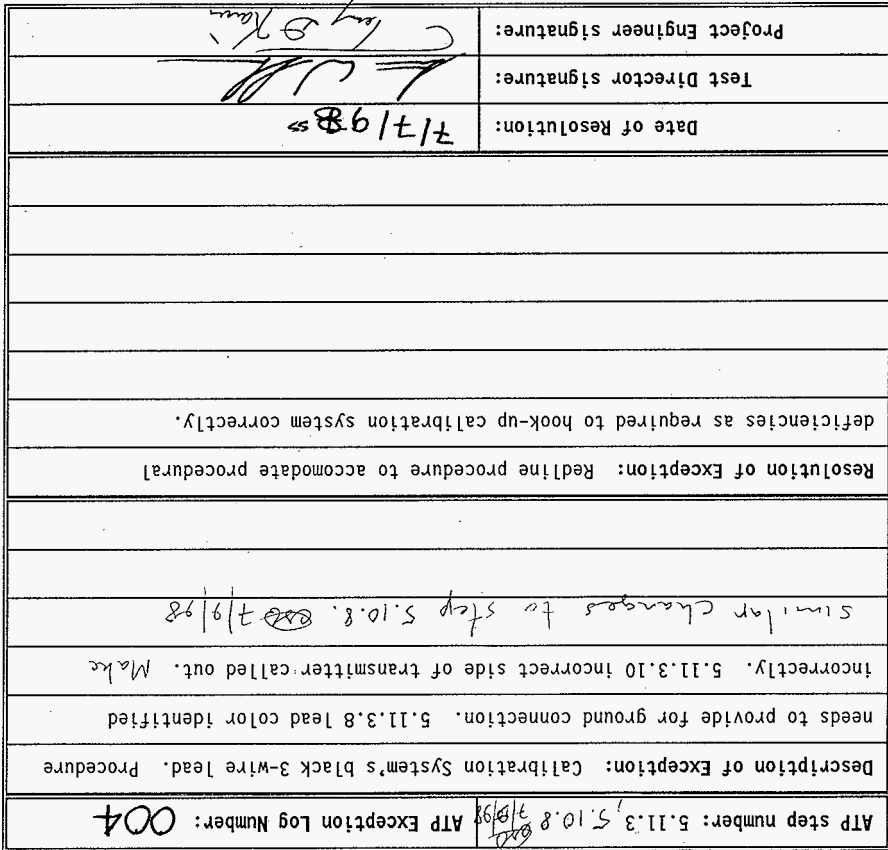 ATP step number: 5.11.3, 5.10.8 7/9/98 ATP Exception Log Number: 004
Description of Exception: Calibration System's black 3-wire lead. Procedure
needs to provide for ground connection. 5.11.3.8 lead color identified
incorrectly. 5.11.3.10 incorrect side of transmitter called out. Make
similar changes to step 5.10.8. 7/9/98
Resolution of Exception: Redline procedure to accomodate procedural
deficiencies as required to hook-up calibration system correctly.
Date of Resolution: 7/7/98
Test Director signature:
Project Engineer signature: